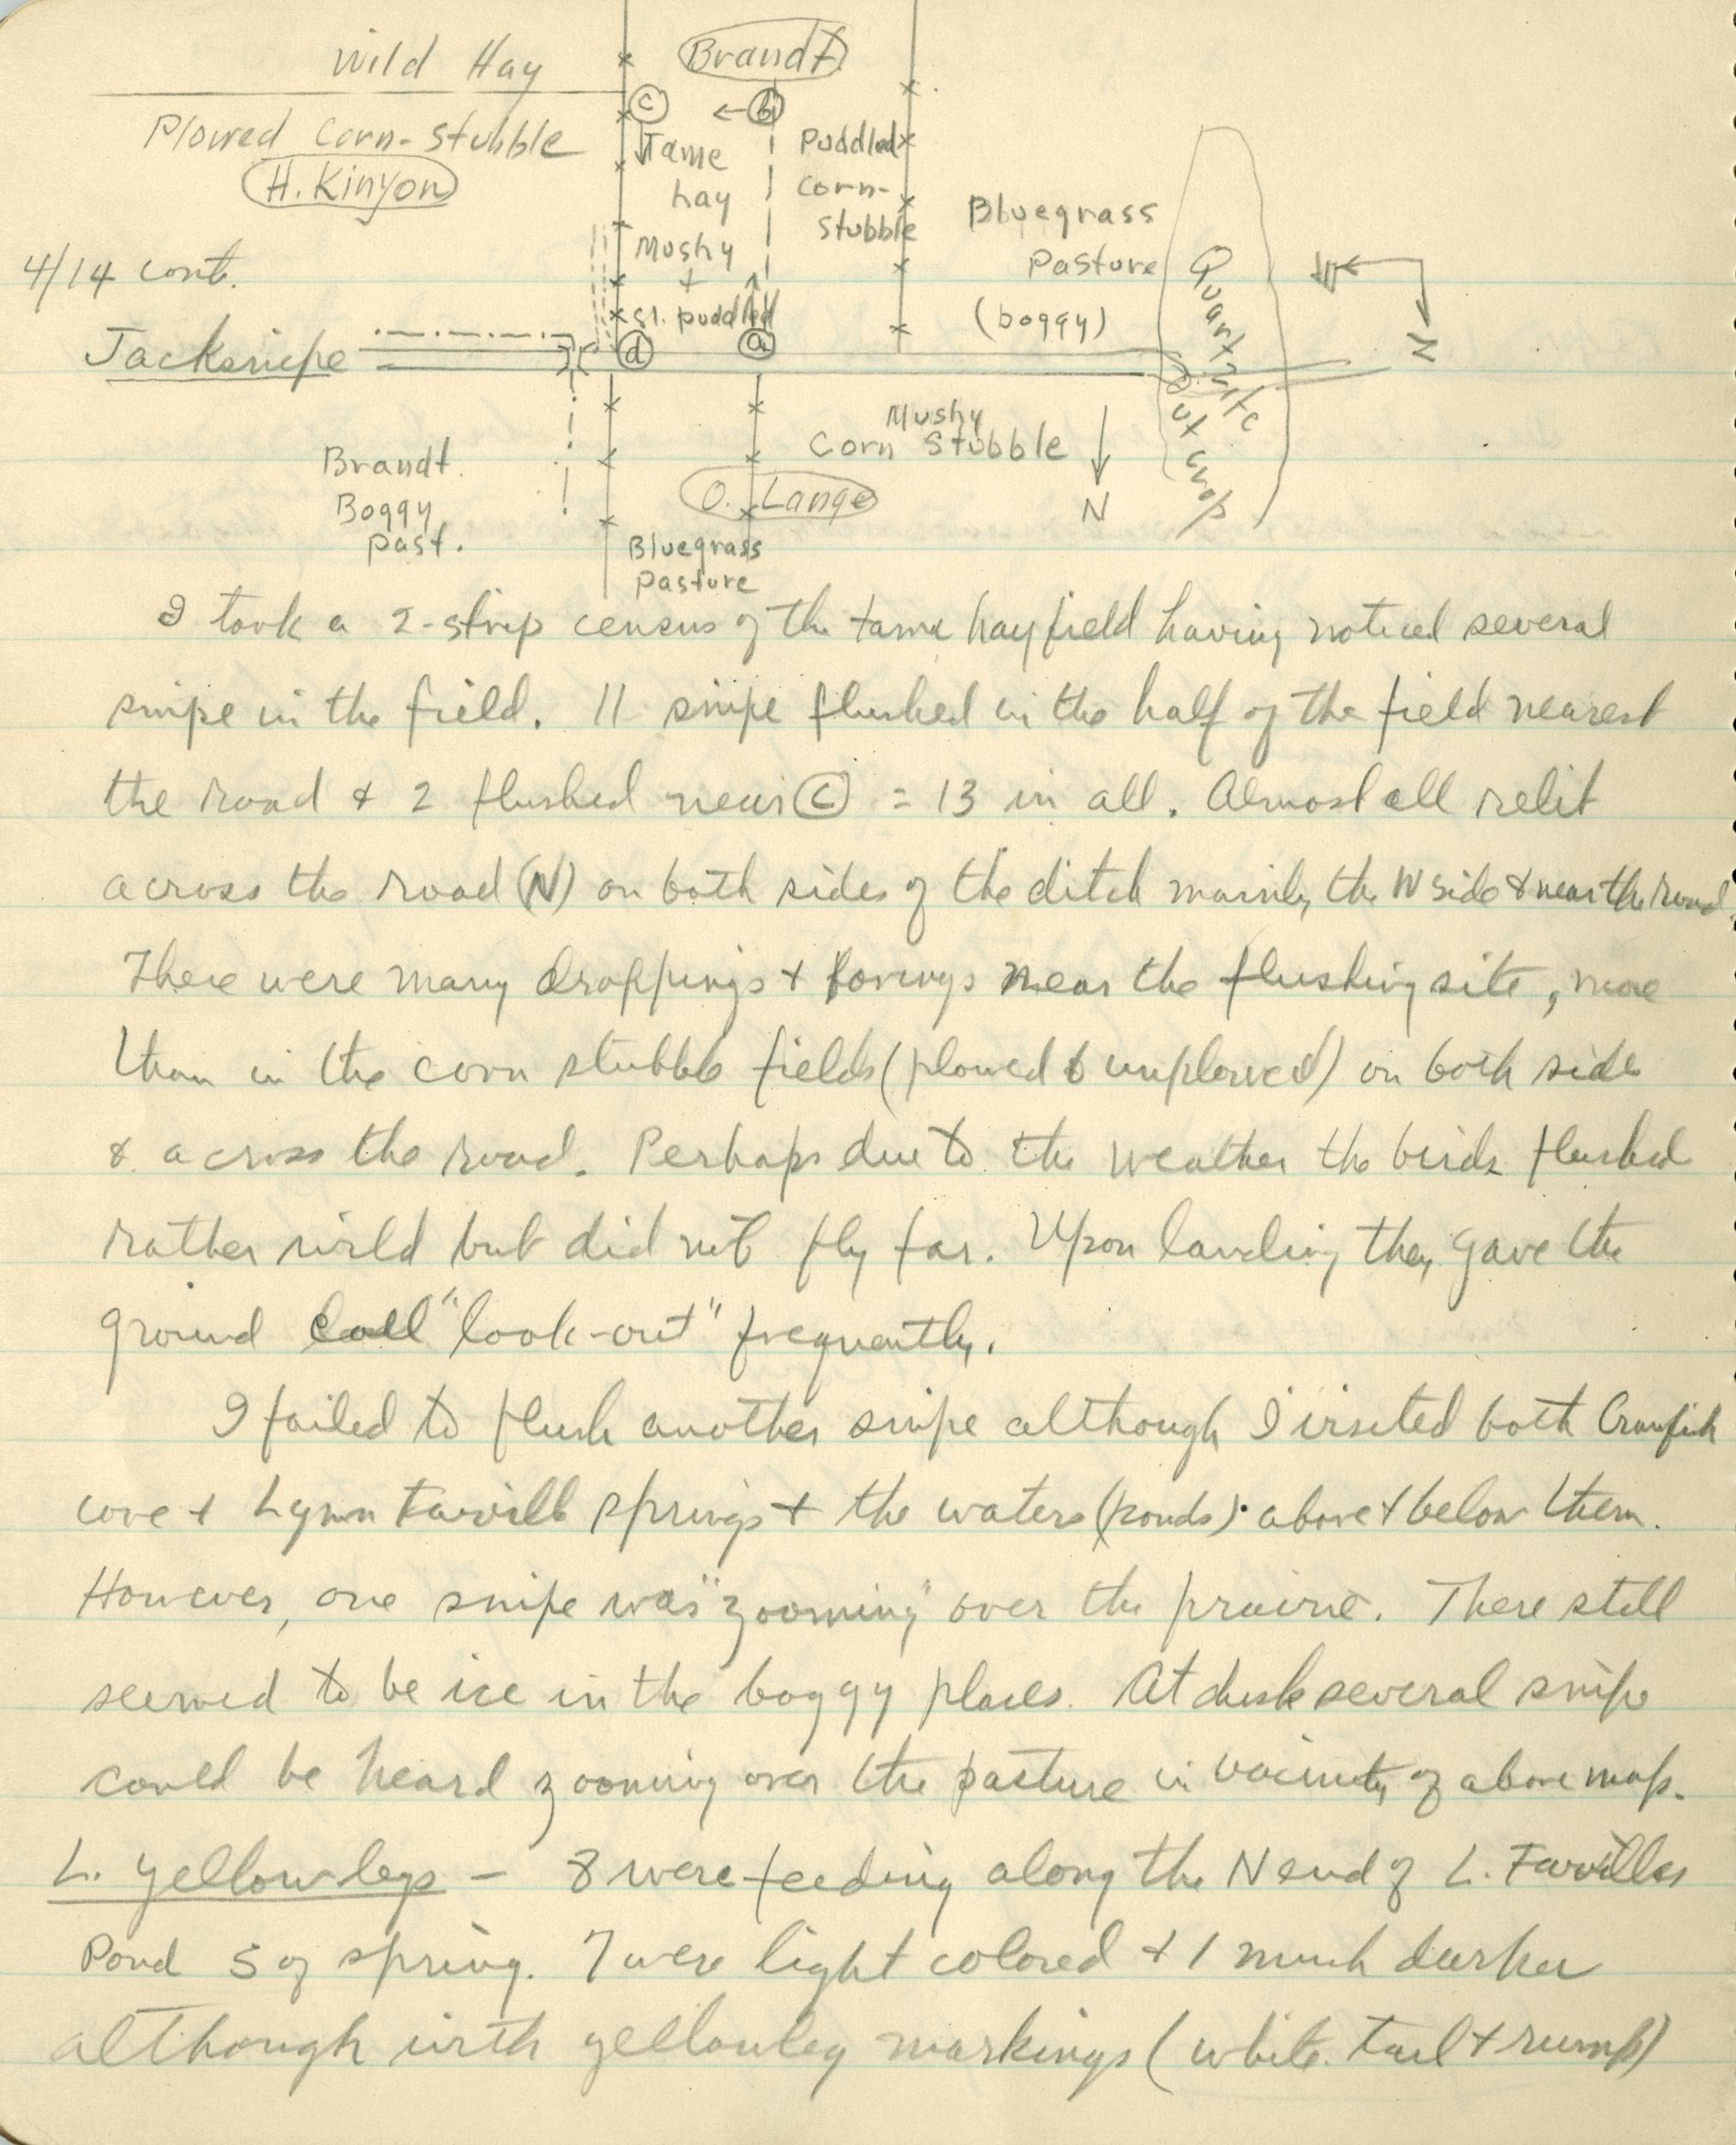 Wild Hay
Brandt
Plowed Corn-Stubble
H. Kinyon
c
← b
Tame
hay
Mushy
+
sl. puddled
Puddled
Corn-
Stubble
Bluegrass
Pasture
(boggy)
Quartzite
Outcrop
W
N
4/14 cont.
Jacksnipe
d
a
Mushy
Corn Stubble
N
Brandt.
Boggy
past.
O. Lange
Bluegrass
Pasture
I took a 2-strip census of the tame hayfield having noticed several
snipe in the field. 11 snipe flushed in the half of the field nearest
the road & 2 flushed near (C) = 13 in all. Almost all relit
across the road (N) on both sides of the ditch mainly the W side & near the road.
There were many droppings + borings near the flushing site, more
than in the corn stubble fields (plowed & unplowed) on both side
& across the road. Perhaps due to the weather the birds flushed
rather wild but did not fly far. Upon landing they gave the
ground call "look-out" frequently.
I failed to flush another snipe although I visited both Crawfish
cove + Lynn Farvills springs + the waters (ponds) above + below them.
However, one snipe was "zooming" over the prairie. There still
seemed to be ice in the boggy places. At dusk several snipe
could be heard zooming over the pasture in vicinity of above map.
L. Yellowlegs - 8 were feeding along the N end of L. Farvilles
Pond S of spring. 7 were light colored + 1 much darker
although with yellowleg markings (white tail + rump)